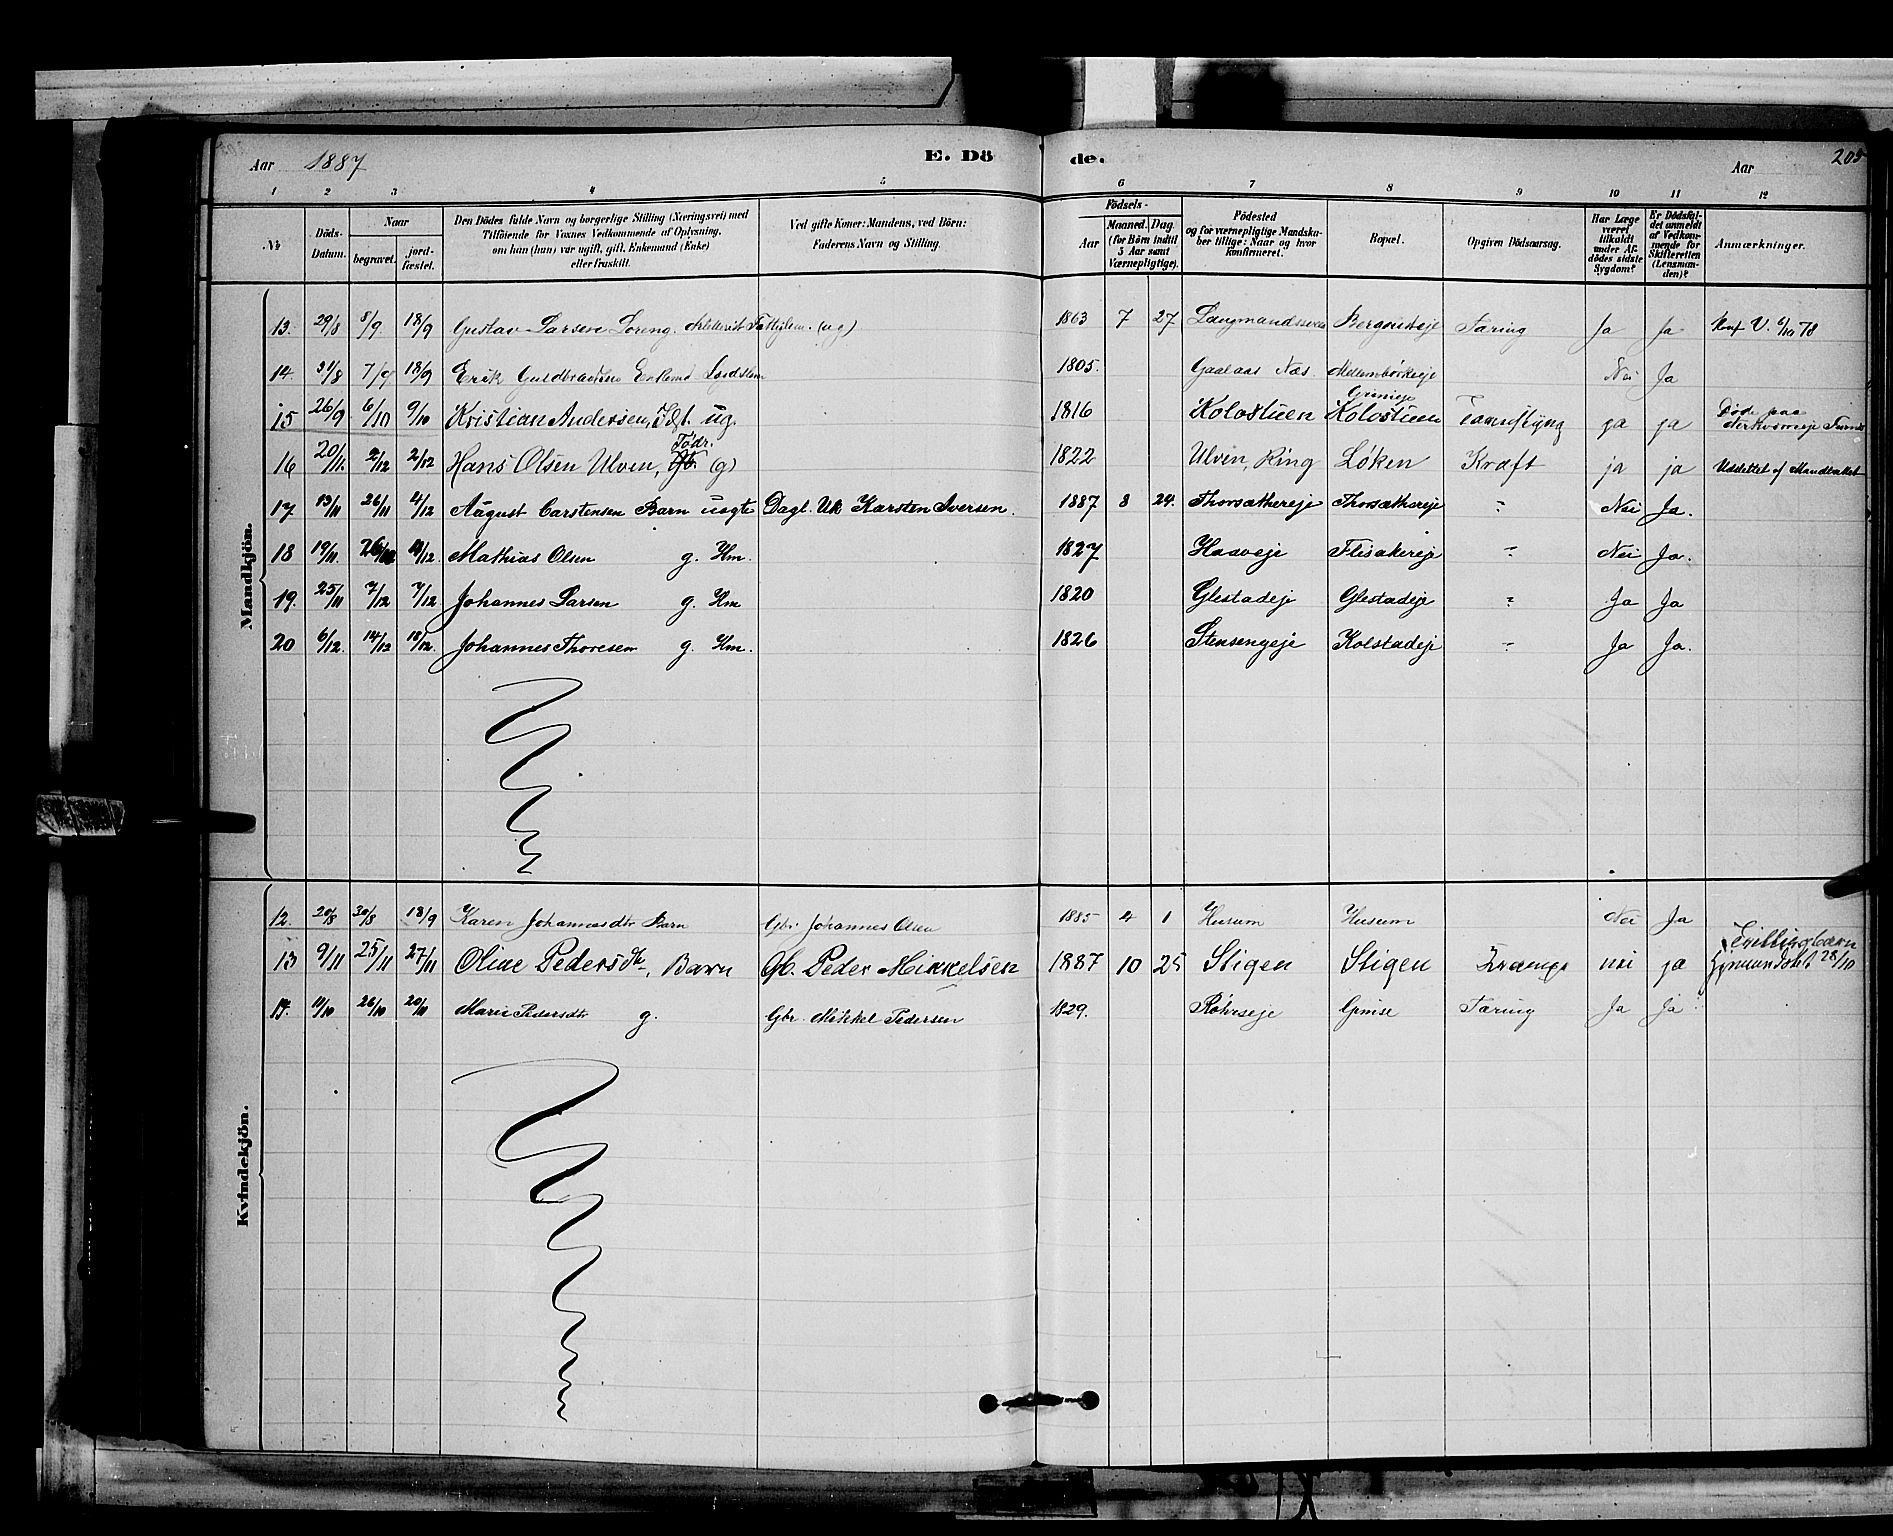 Aar 1887 E. Dö de. Aar 205
1 2 3 4 5 6 7 8 9 10 11 12
No Döds-Datum. Naar begravet. jord-fæstet. Den Dödes fulde Navn og borgerlige Stilling (Næringsvei) med Tilföiende for Voxnes Vedkommende af Oplysning, om han (hun) var ugift, gift, Enkemand (Enke) eller fraskilt. Ved gifte Koner: Mandens, ved Börn: Faderens Navn og Stilling. Födsels- Aar Maaned. Dag. (for Börn indtil 5 Aar samt Værnepligtige). Födested og for værnepligtige Mandskaber tillige: Naar og hvor konfirmeret. Bopæl. Opgiven Dödsaarsag. Har Læge været tilkaldt under Afdödes sidste Sygdom? Er Dödsfaldet anmeldt af Vedkommende for Skifteretten (Lensmanden)? Anmærkninger.
Mandkjön.
13. 29/8 8/9. 18/9 Gustav Larsen Loreng. (ug) 1863 7 27 Tæring Ja Ja
14. 31/8 7/9 18/9 Erik Guldbrandsen Enkemd 1805. Gaalaas Næs. Nei Ja
15 26/9 6/10 9/10 Kristian Andersen, ug. 1816 Kolostuen Kolostuen ja ja Døde paa
16 20/11. 2/12 2/12 Hans Olsen Ulven, Födr. (g) 1822 Ulven, Ring Löken Kræft ja ja
17 13/11 26/11 4/12 August Carstensen Barn uægte Dagl. Uk Karsten Iversen. 1887 8 24. Thorsæthereje Thorsæthereje Nei Ja.
18 19/11. Mathias Olsen g. Hm. 1827 Haaveje Flisakereje Nei Ja.
19. 25/11 7/12 7/12 Johannes Larsen g. Hm 1820 Glestadeje Glestadeje Ja Ja
20 6/12. 14/12 18/12. Johannes Thoresen g. Hm. 1826 Stensengeje Kolstadeje Ja Ja.
Kvindekjön.
12. 20/8 30/8 18/9 Karen Johannesdtr Barn Gbr. Johannes Olsen 1885 4 1 Husum Husum Nei Ja
13 9/11 25/11 27/11 Oline Pedersdtr, Barn Gb. Peder Mikkelsen 1887 10 25 Stigen Stigen nei ja Tvillingbarn Hjemmedøbt 28/10
14. 11/10 26/10 20/11 Marie Pedersdtr g. Gbr. Mikkel Pedersen 1829. Röhrseje Grinse Tæring Ja Ja